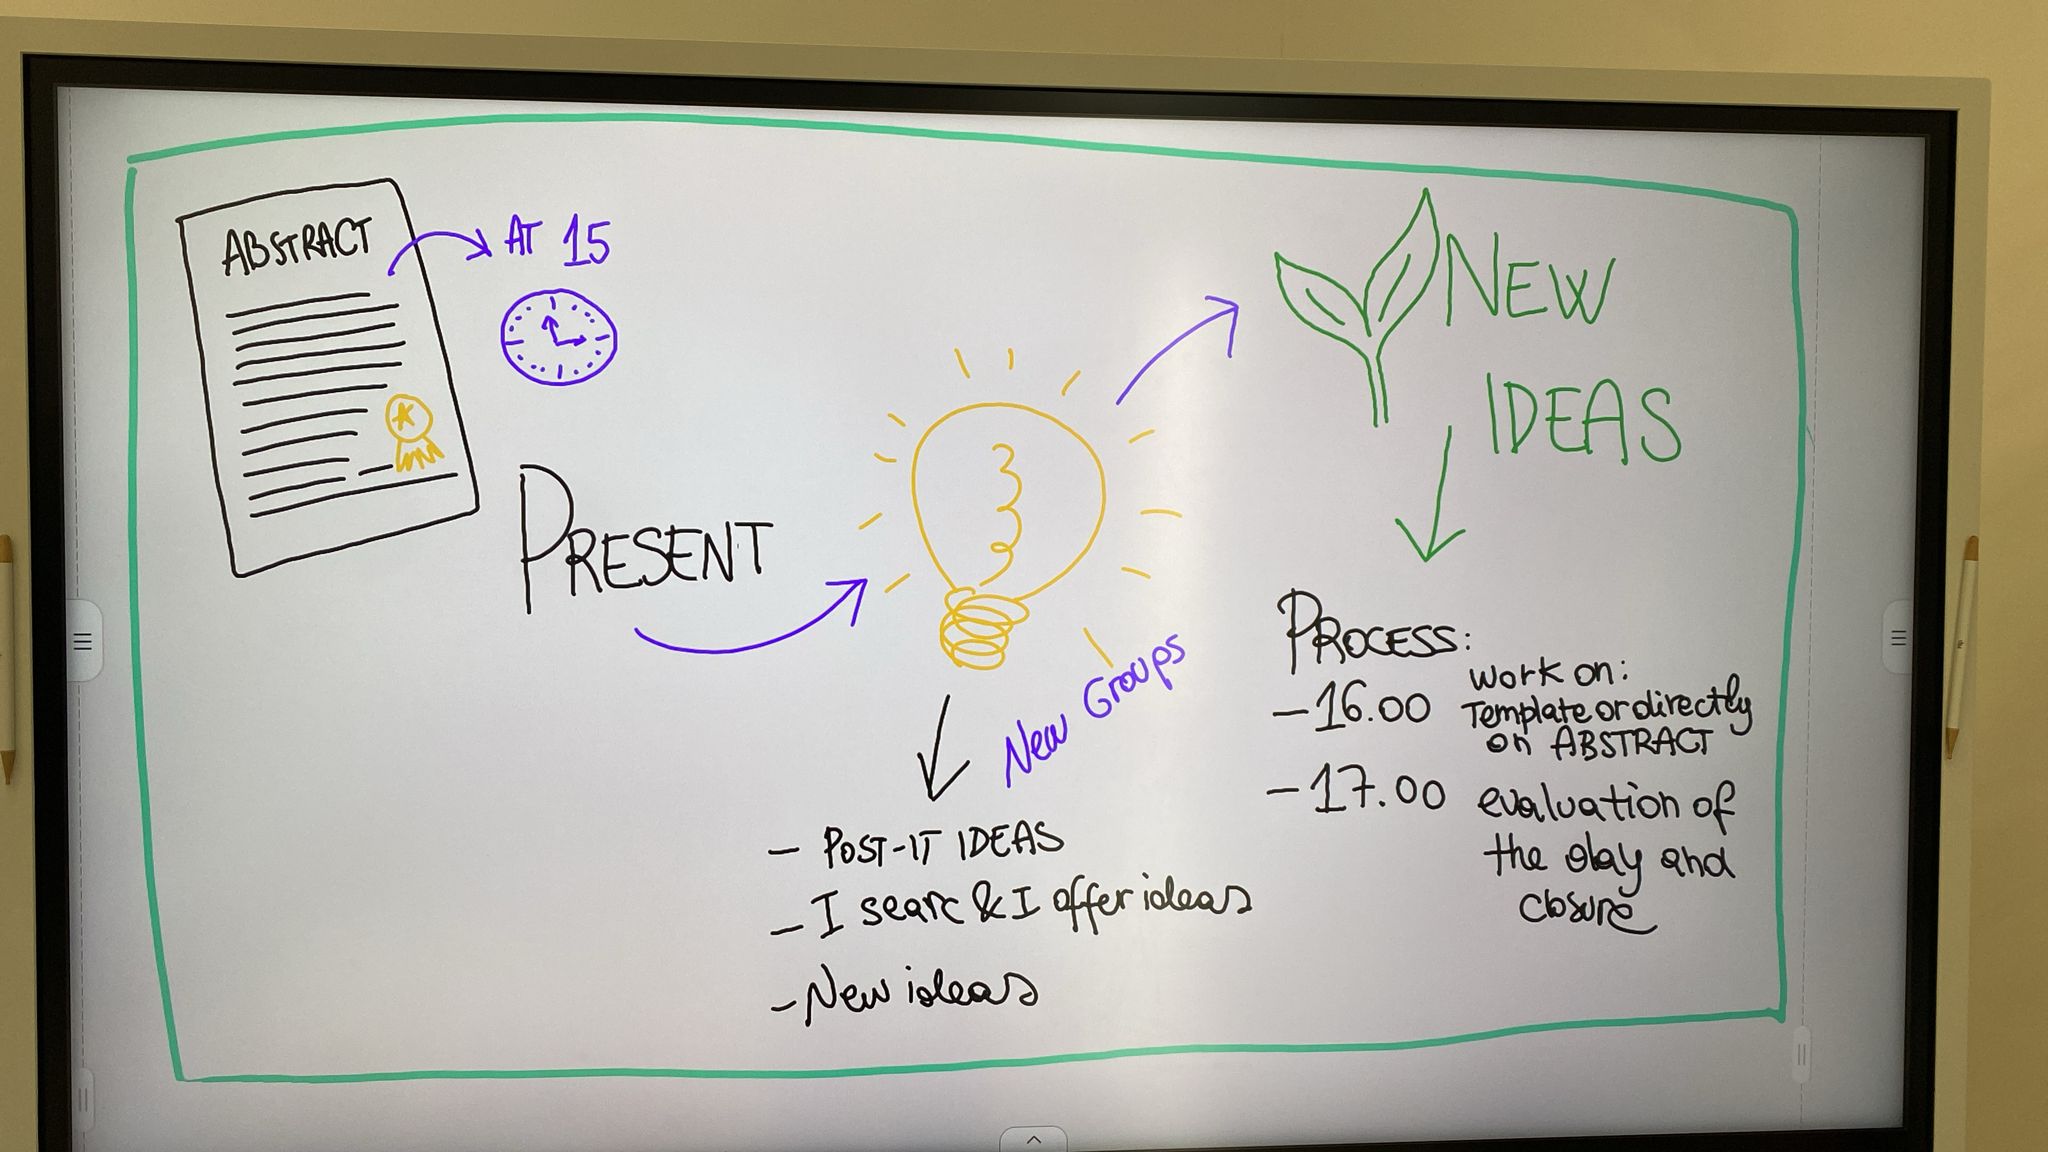 ABSTRACT
AT 15
PRESENT
New Groups
- POST-IT IDEAS
- I searc & I offer ideas
- New ideas
NEW
IDEAS
PROCESS:
- 16.00 work on:
Template or directly
on ABSTRACT
- 17.00 evaluation of
the day and
closure